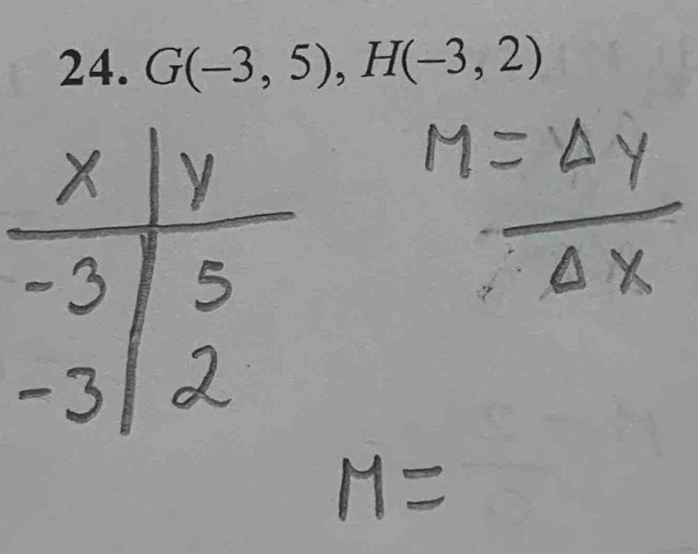 24. G(−3, 5), H(−3, 2)
x | y
-3 | 5
-3 | 2
M = Δy
Δx
M =